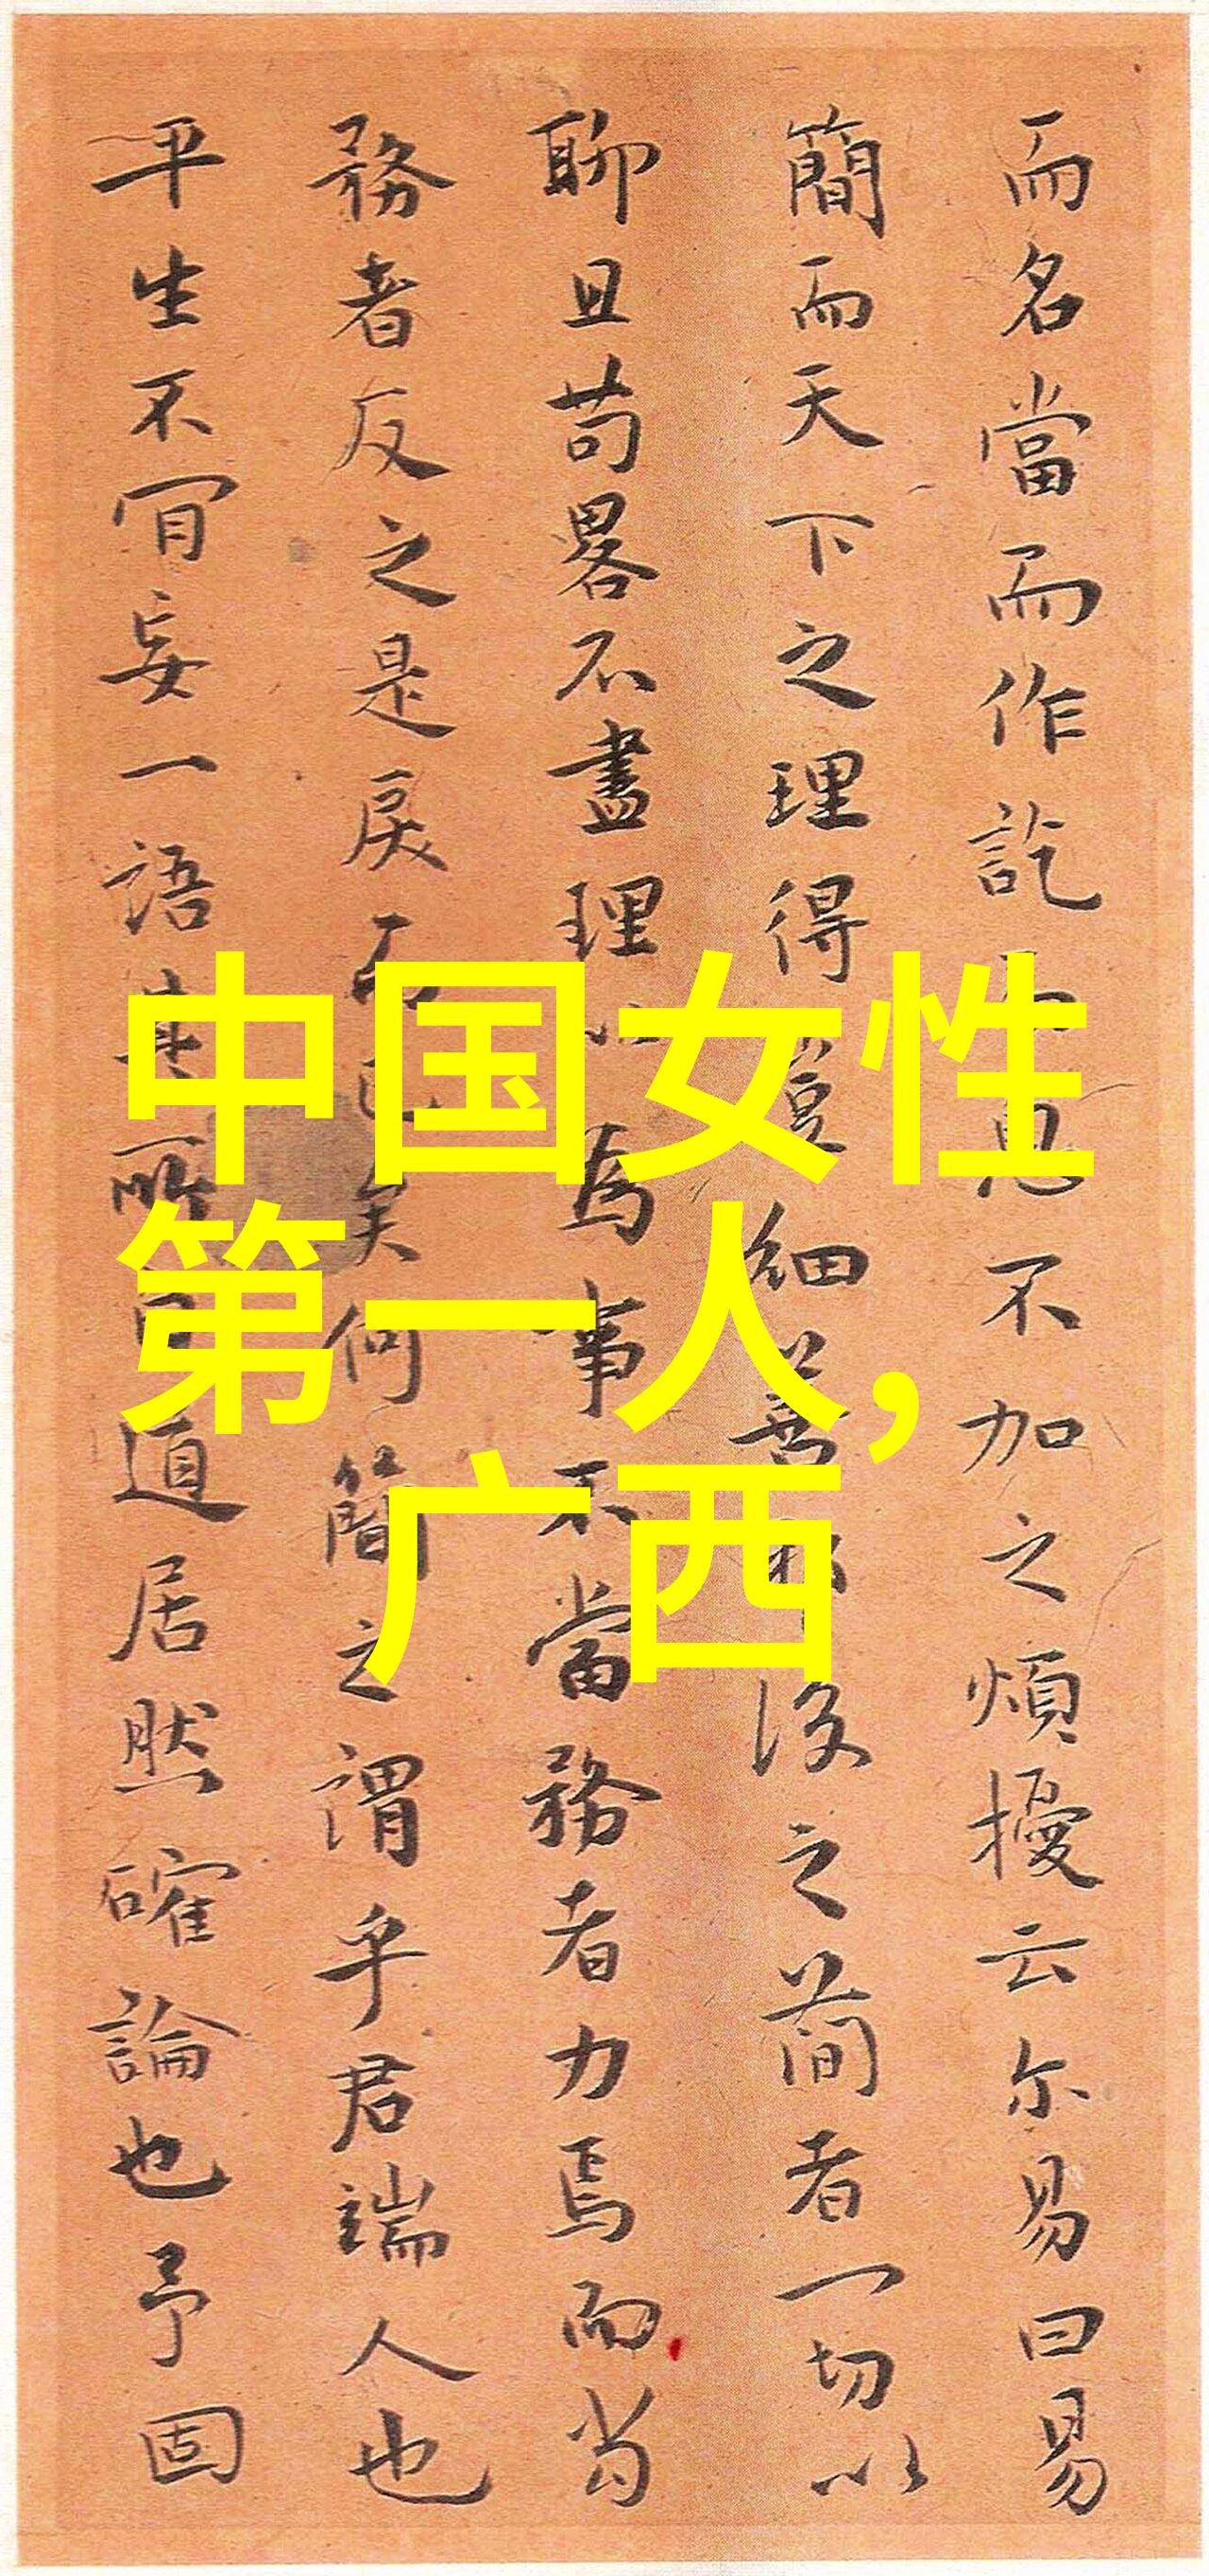 而名當而作訖不加之煩擾云尔易曰易
簡而天下之理得細善後之简者一切以
聊且苟畧不盡理為事不當務者力焉而當
務者反之是戾而已矣何簡之謂乎君端人也
平生不肎妄一語其所道居然確論也予固
中国女性
第一人，
广西